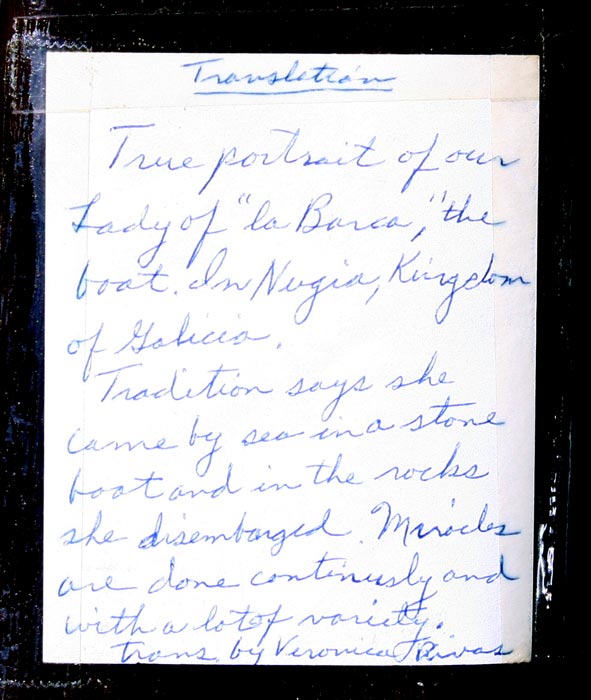 Translation
True portrait of our
Lady of "la Barca," the
boat. In Nugia, Kingdom
of Galicia.
Tradition says she
came by sea in a stone
boat and in the rocks
she disembarged. Miracles
are done continusly and
with a lot of variety.
trans. by Veronica Rivas